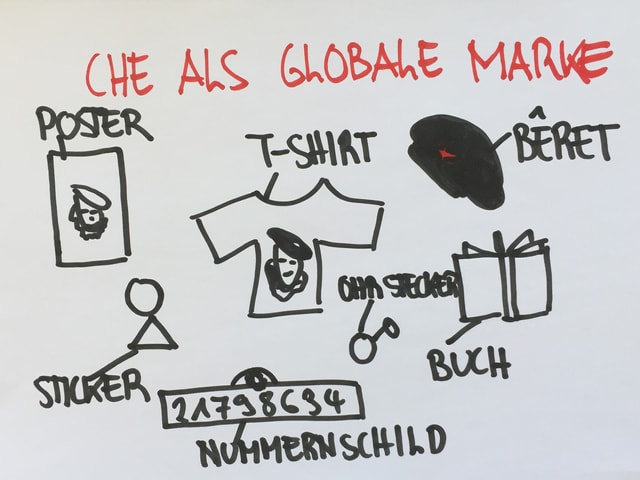 CHE ALS GLOBALE MARKE
POSTER
T-SHIRT
BÊRET
OHRSTECKER
BUCH
STICKER
21798694
NUMMERNSCHILD